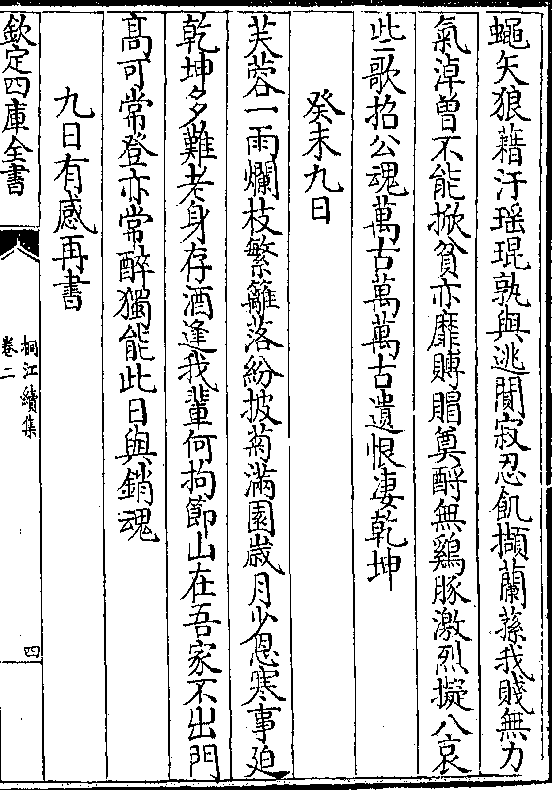 蠅矢狼藉汙瑶琨孰與逃閴寂忍飢擷蘭蓀我賤無力
氣淖曾不能掀貧亦靡賻賵奠酹無鷄豚激烈擬八哀
些歌招公魂萬古萬萬古遺恨凄乾坤
癸未九日
芙蓉一雨爛枝繁籬落紛披菊滿園歲月少恩寒事廹
乾坤多難老身存酒逢我輩何拘節山在吾家不出門
髙可常登亦常醉獨能此日與銷魂
九日有感再書
欽定四庫全書
桐江續集
卷二
四